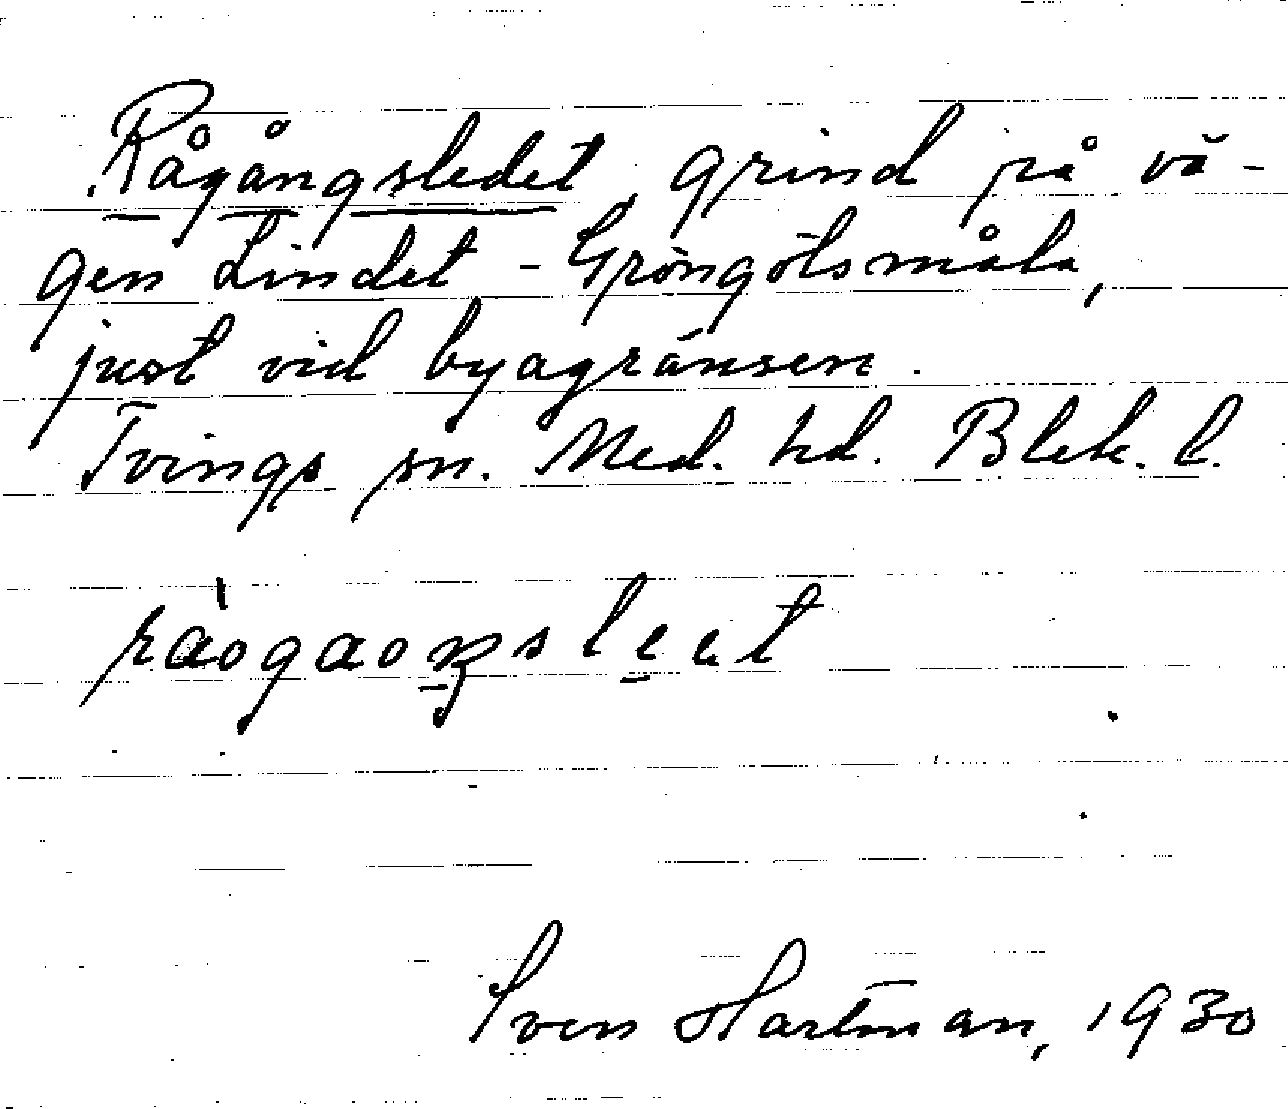 Rågångsledet, grind på vä-
gen Lindet - Gröngölsmåla,
just vid byagränsen.
Tvings sn. Med. hd. Blek. l.
råogaoŋsleet
Sven Hartman, 1930